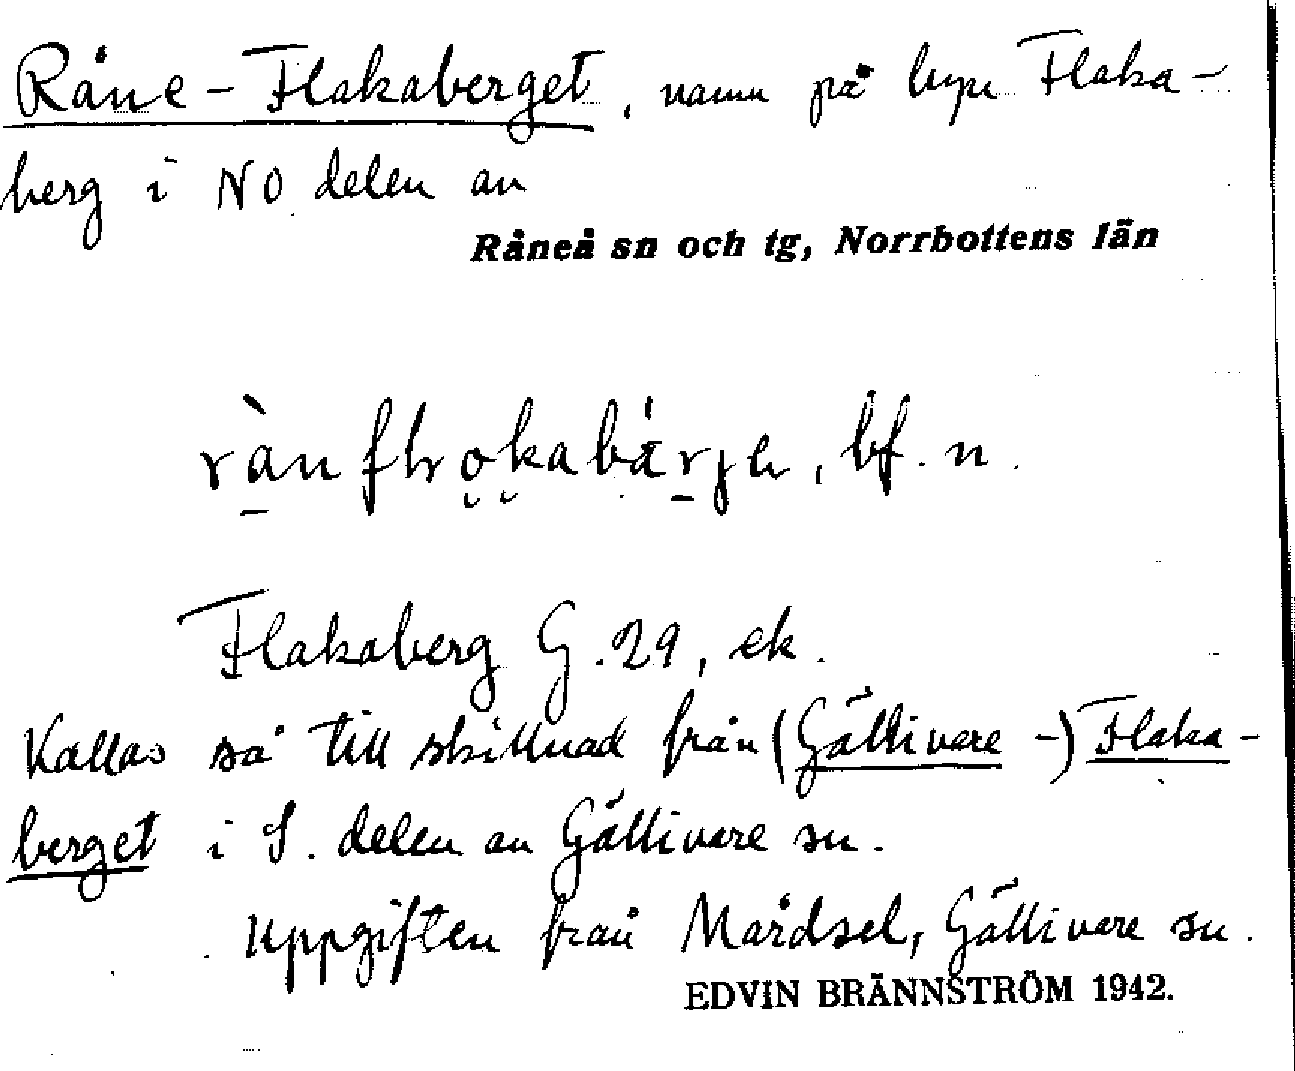 Råne-Flakaberget, namn på byn Flaka-
berg i NO delen av
Råneå sn och tg, Norrbottens län
bf. n.
Flakaberg G. 29, ek.
Kallas så till skillnad från (Gällivare-) Flaka-
berget i S. delen av Gällivare sn.
Uppgiften från Mårdsel, Gällivare sn.
EDVIN BRÄNNSTRÖM 1942.